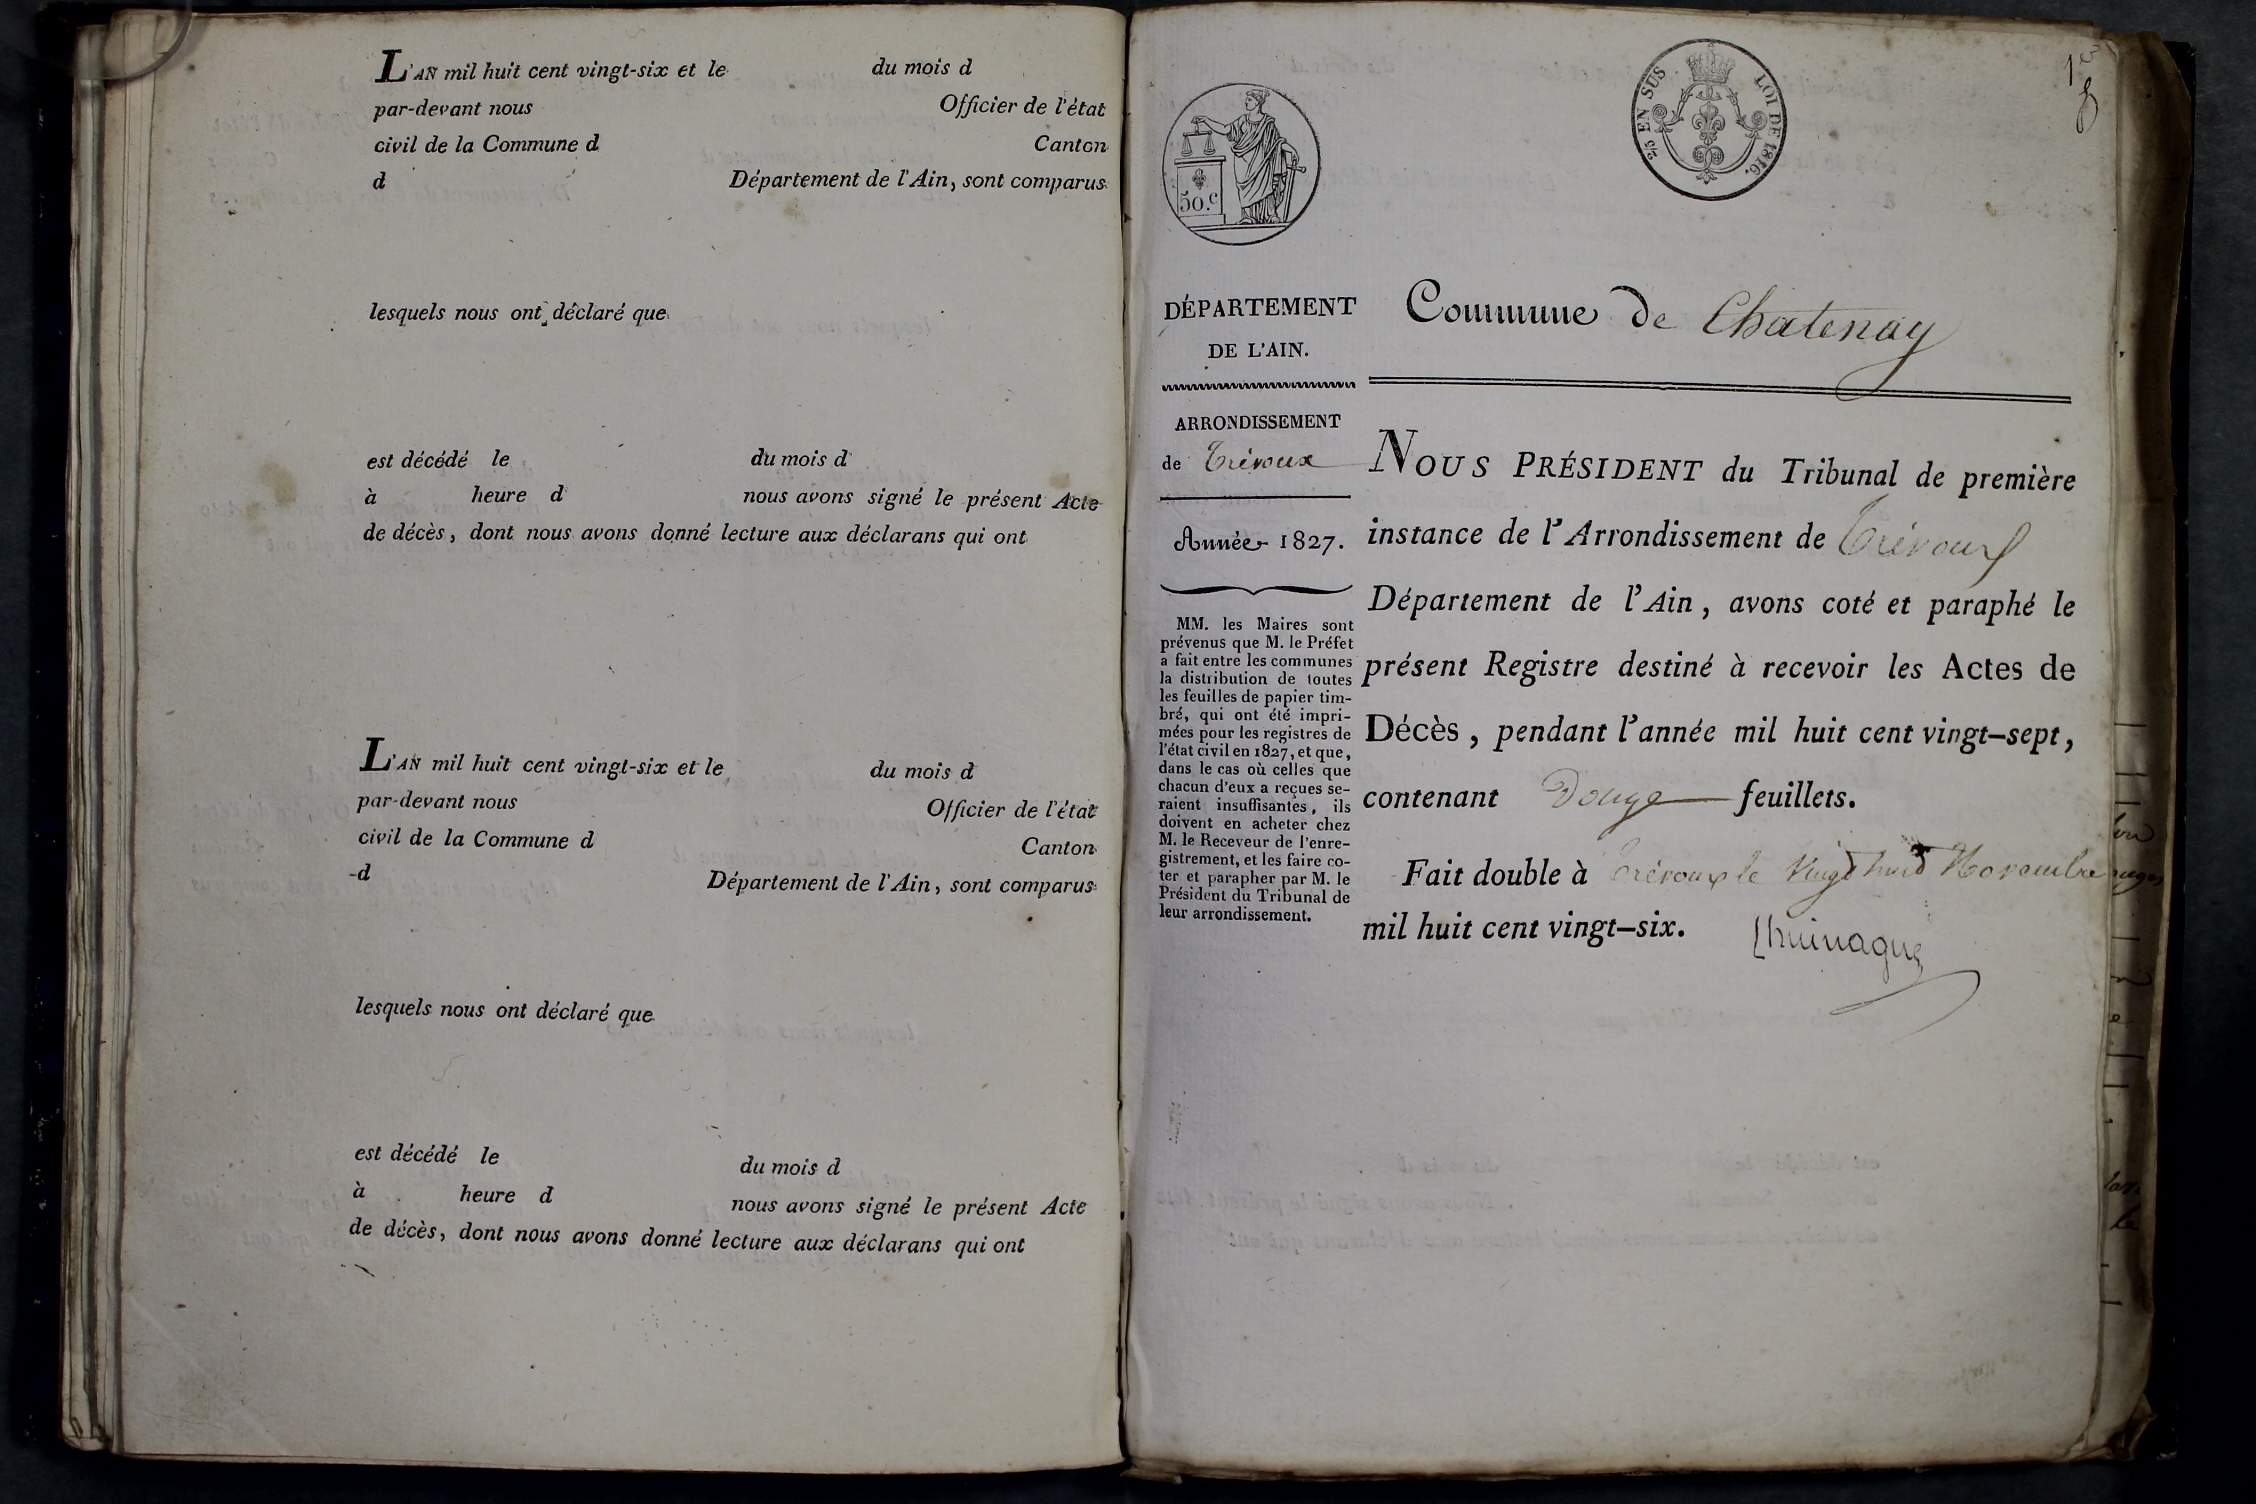 L'AN mil huit cent vingt-six et le du mois d
par-devant nous Officier de l'état
civil de la Commune d Canton
d Département de l'Ain, sont comparus
lesquels nous ont déclaré que
est décédé le du mois d
à heure d nous avons signé le présent Acte
de décès, dont nous avons donné lecture aux déclarans qui ont
L'AN mil huit cent vingt-six et le du mois d
par-devant nous Officier de l'état
civil de la Commune d Canton
d Département de l'Ain, sont comparus
lesquels nous ont déclaré que
est décédé le du mois d
à heure d nous avons signé le présent Acte
de décès, dont nous avons donné lecture aux déclarans qui ont
50.c
2/5 EN SUS LOI DE 1816.
DÉPARTEMENT
DE L'AIN.
ARRONDISSEMENT
de Trévoux
Année 1827.
MM. les Maires sont
prévenus que M. le Préfet
a fait entre les communes
la distribution de toutes
les feuilles de papier tim-
bré, qui ont été impri-
mées pour les registres de
l'état civil en 1827, et que,
dans le cas où celles que
chacun d'eux a reçues se-
raient insuffisantes, ils
doivent en acheter chez
M. le Receveur de l'enre-
gistrement, et les faire co-
ter et parapher par M. le
Président du Tribunal de
leur arrondissement.
Commune de Chatenay
NOUS PRÉSIDENT du Tribunal de première
instance de l'Arrondissement de Trévoux
Département de l'Ain, avons coté et paraphé le
présent Registre destiné à recevoir les Actes de
Décès, pendant l'année mil huit cent vingt-sept,
contenant Douze feuillets.
Fait double à Trévoux le Vingt huit Novembre
mil huit cent vingt-six.